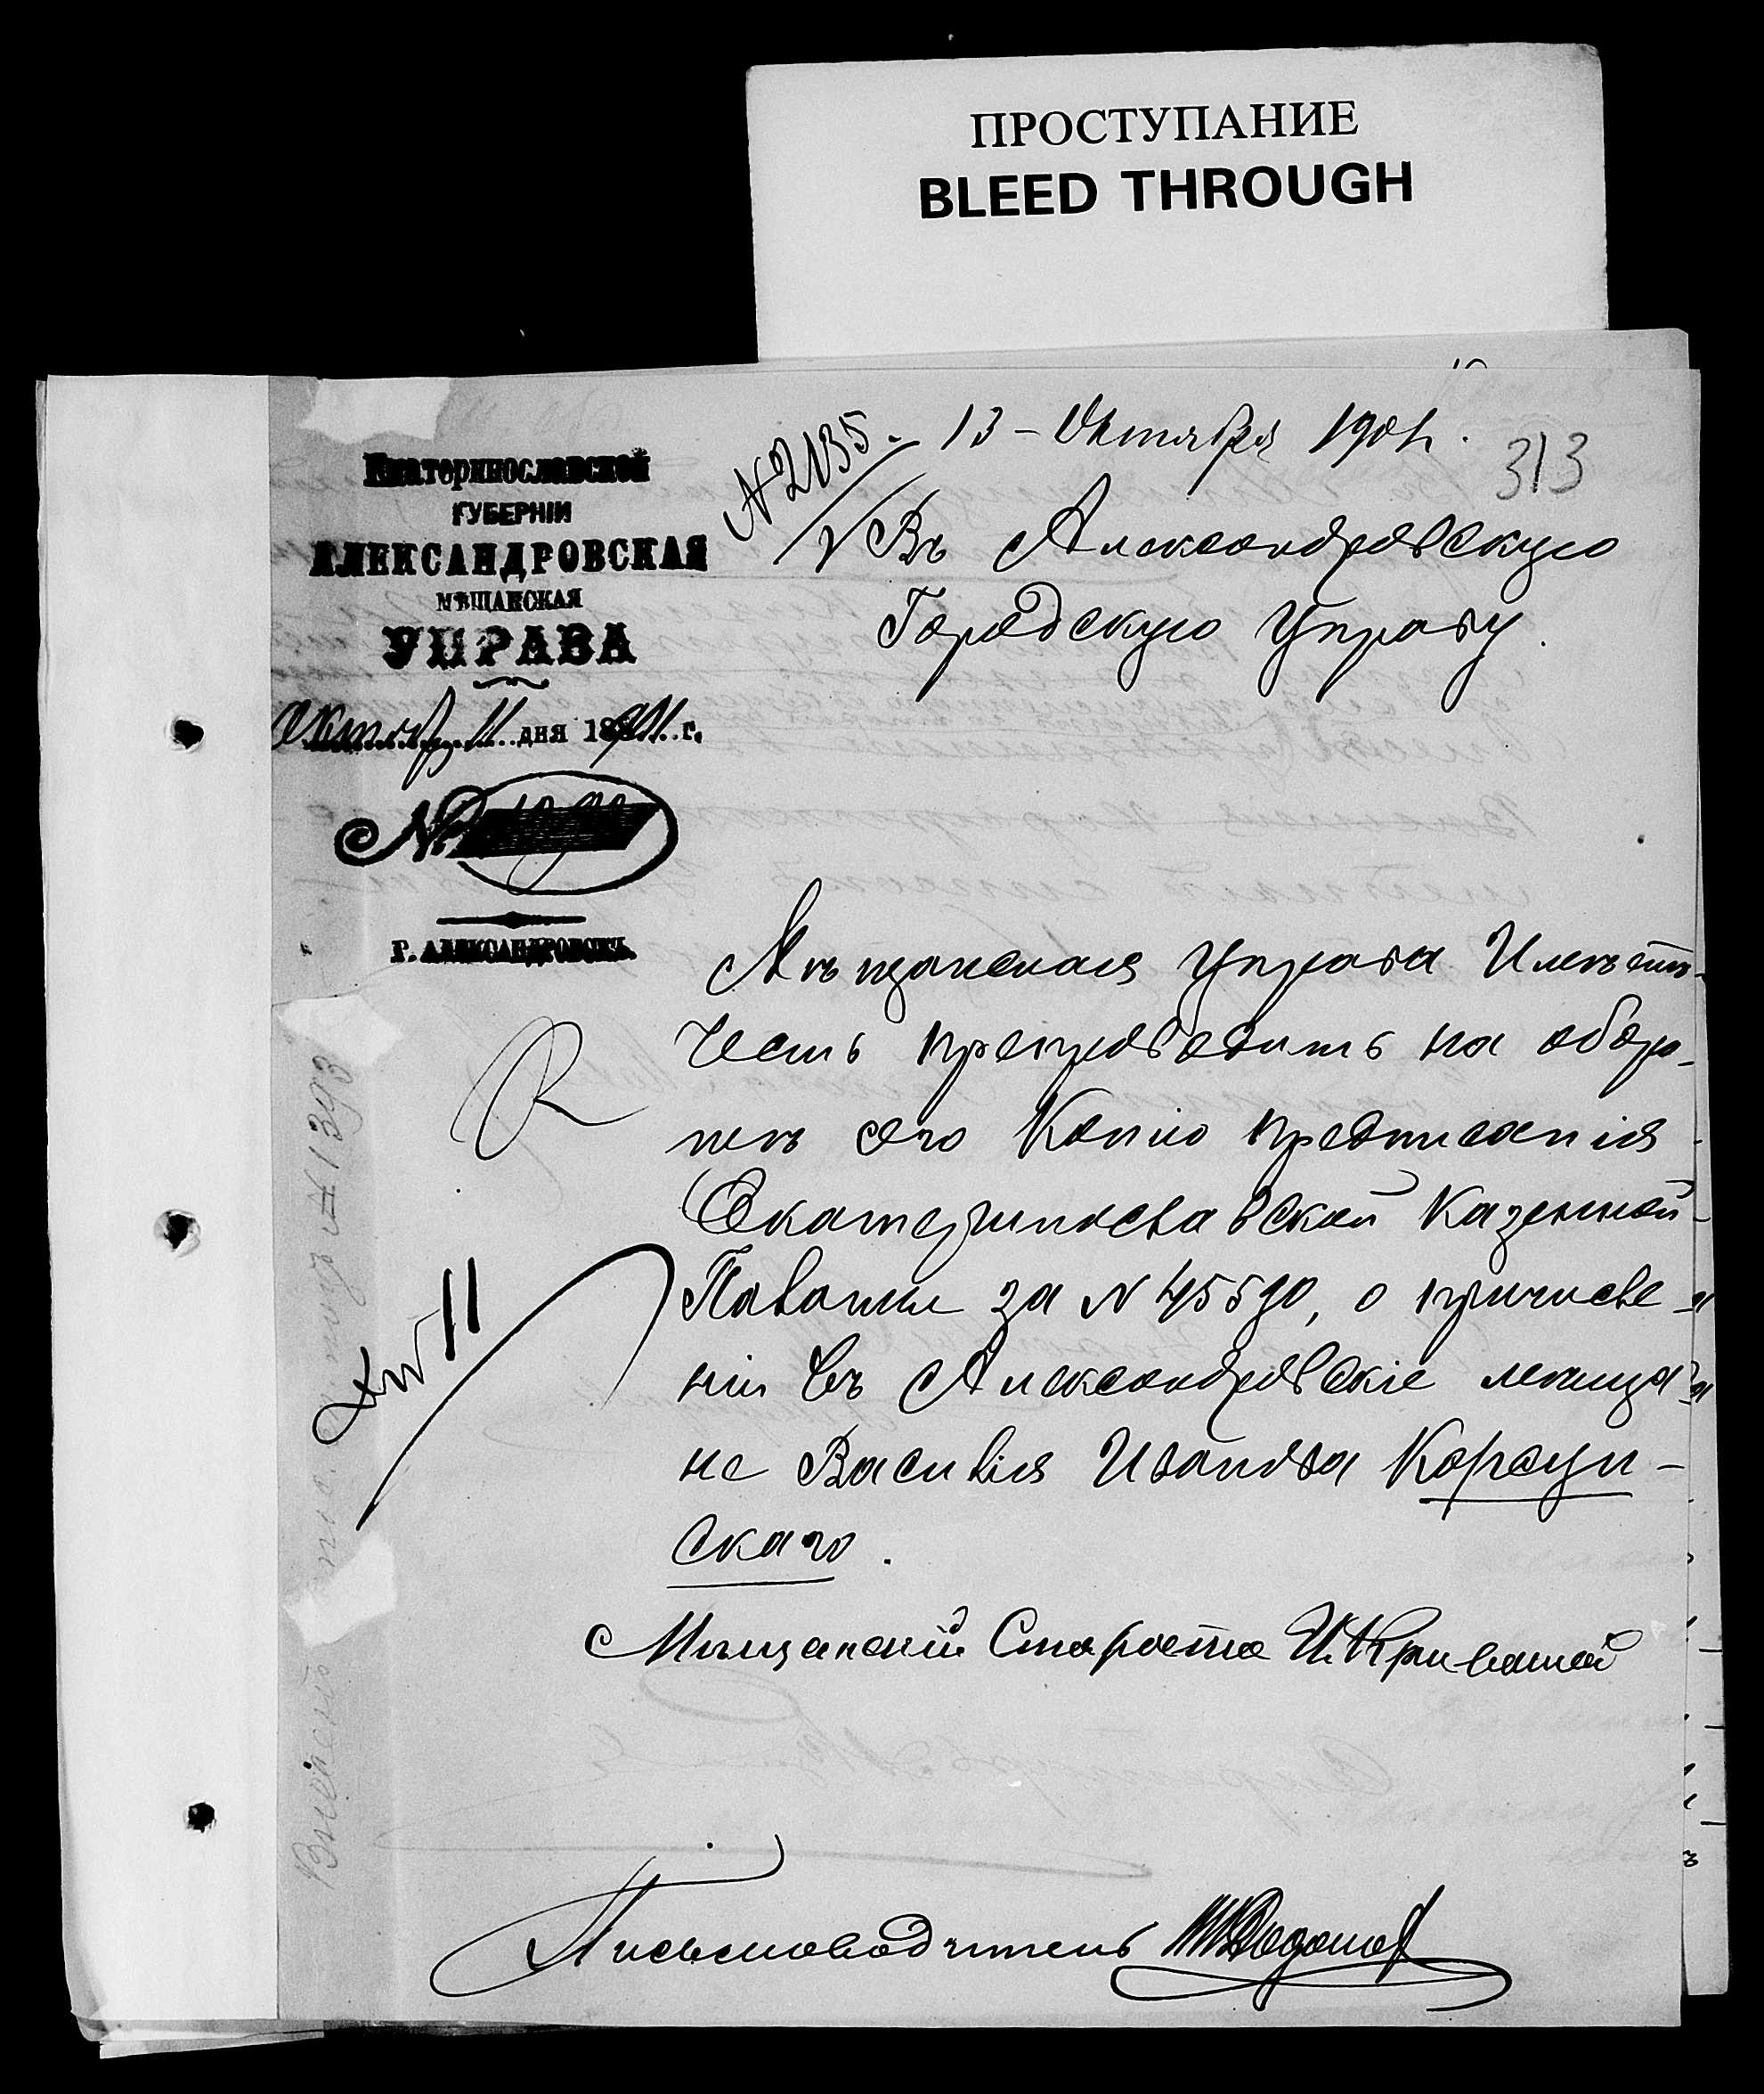 ПРОСТУПАНИЕ
BLEED THROUGH
N 2135. 13 – Октября 1901 г.
313
Екатеринославской
ГУБЕРНІИ
АЛЕКСАНДРОВСКАЯ
МѢЩАНСКАЯ
УПРАВА
Октяб. 11 дня 1901 г.
№
Г. АЛЕКСАНДРОВСКЪ.
Въ Александровскую
Городскую Управу.
Мѣщанская Управа Имѣетъ
честь препроводить на оборо-
тѣ сего Копію предписанія
Екатеринославской Казенной
Палаты за N 45590, о причисле-
ніи въ Александровскіе мѣща-
не Василія Иванова Корсун-
скаго.
Мѣщанскій Староста И. Кривошей
Письмоводитель